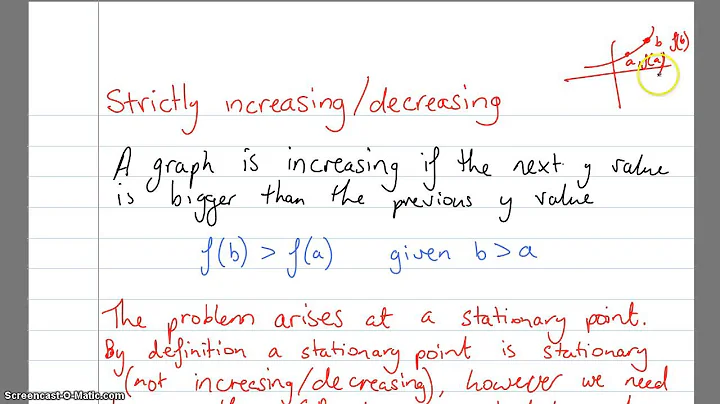 b f(b)
a, f(a)
Strictly increasing/decreasing
A graph is increasing if the next y value
is bigger than the previous y value
f(b) > f(a) given b > a
The problem arises at a stationary point.
By definition a stationary point is stationary
(not increasing/decreasing), however we need
Screencast-O-Matic.com